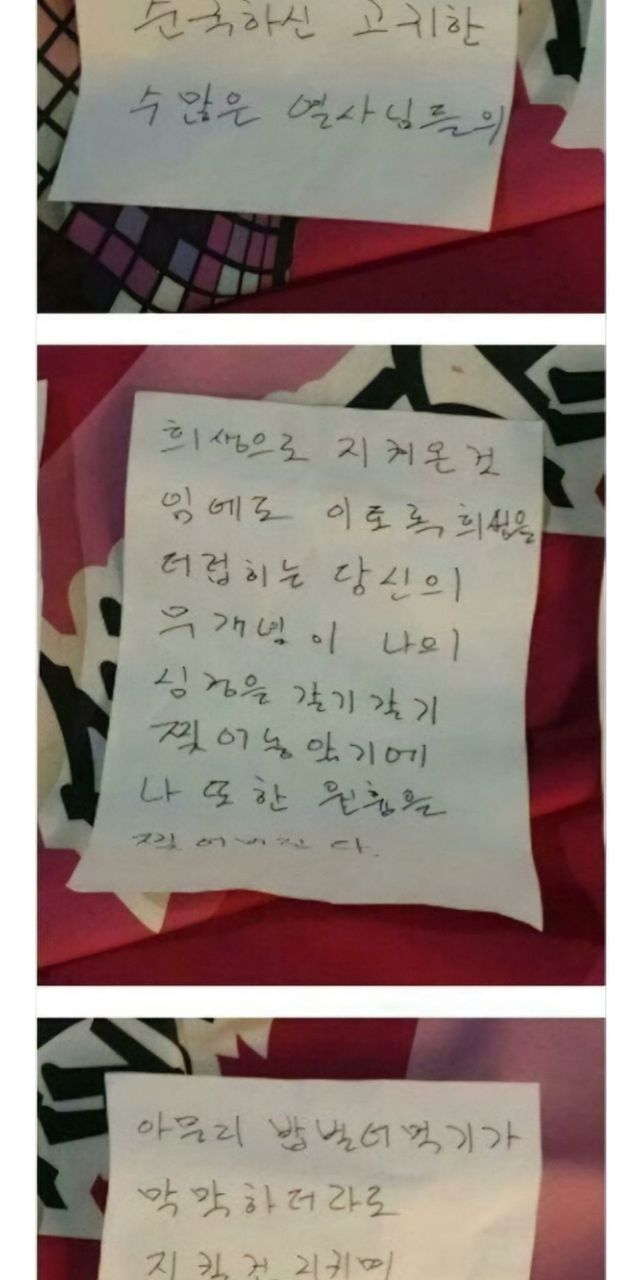 순국하신 고귀한
수많은 열사님들의
희생으로 지켜온것
임에도 이토록 희생을
더럽히는 당신의
무개념이 나의
심장을 갈기갈기
찢어놓았기에
나 또한
찢어버린다.
아무리 밥벌어먹기가
막막하더라도
지킬건 지키며